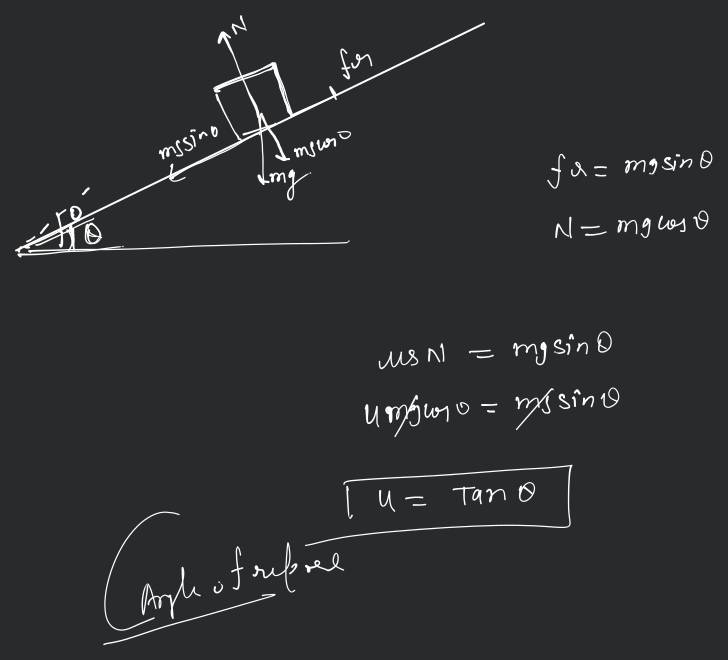 N
fr
mgsinθ
mgcosθ
mg
θ'
θ
fr = mgsinθ
N = mgcosθ
μsN = mgsinθ
μmgcosθ = mgsinθ
μ = Tanθ
Angle of repose